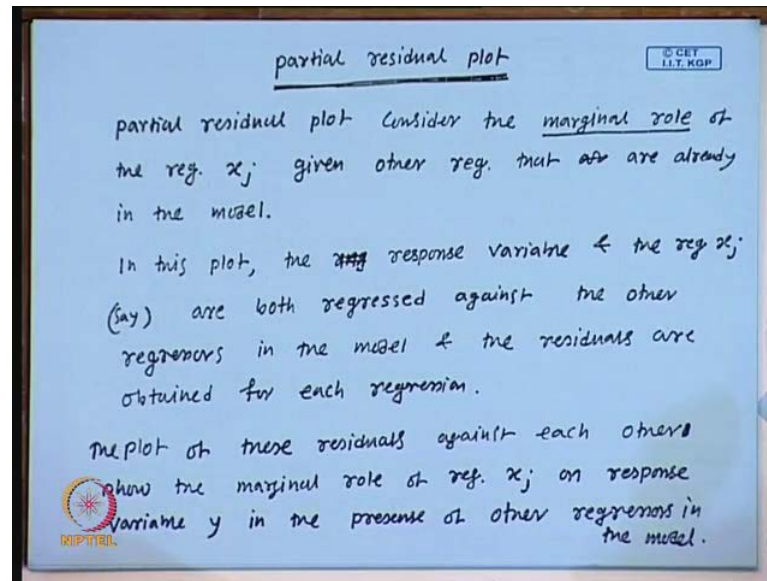 partial residual plot
© CET
I.I.T. KGP
partial residual plot consider the marginal role of
the reg. xj given other reg. that are already
in the model.
In this plot, the response variable & the reg xj
(say) are both regressed against the other
regressors in the model & the residuals are
obtained for each regression.
The plot of these residuals against each other
show the marginal role of reg. xj on response
variable y in the presense of other regressors in
the model.
NPTEL